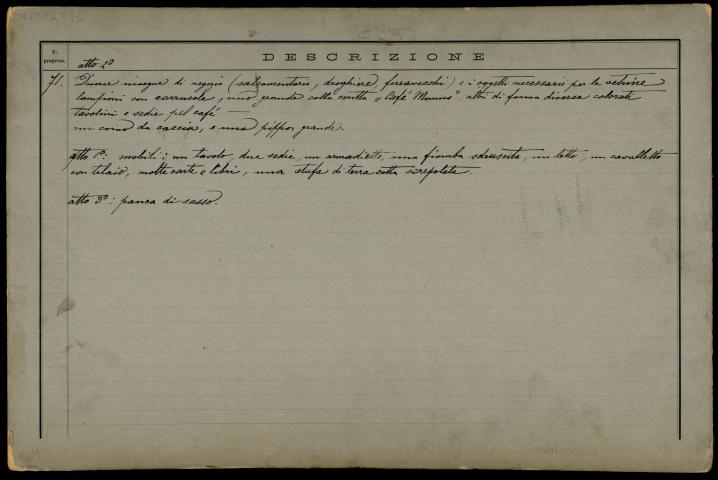 N.
progress.
DESCRIZIONE
atto 2º
71. Diverse insegne di negozio (salsamentario, droghiere, ferravecchi) e i oggetti necessari per le vetrine
Lampioni con carrucole, uno grande colla scritta "Café Momus", altri di forma diversa colorati
tavolini e sedie pel café
un corno da caccia, e una pippa grande.
atto 1º: mobili: un tavolo, due sedie, un armadietto, una fiamba sdruscita, un letto, un cavalletto
con telaio, molte carte e libri, una stufa di terra cotta screpolata.
atto 3º: panca di sasso.